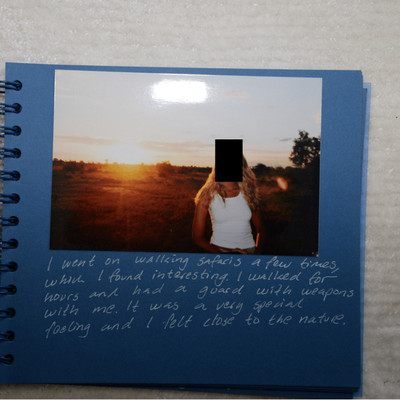 I went on walking safaris a few times,
which I found interesting. I walked for
hours and had a guard with weapons
with me. It was a very special
feeling and I felt close to the nature.